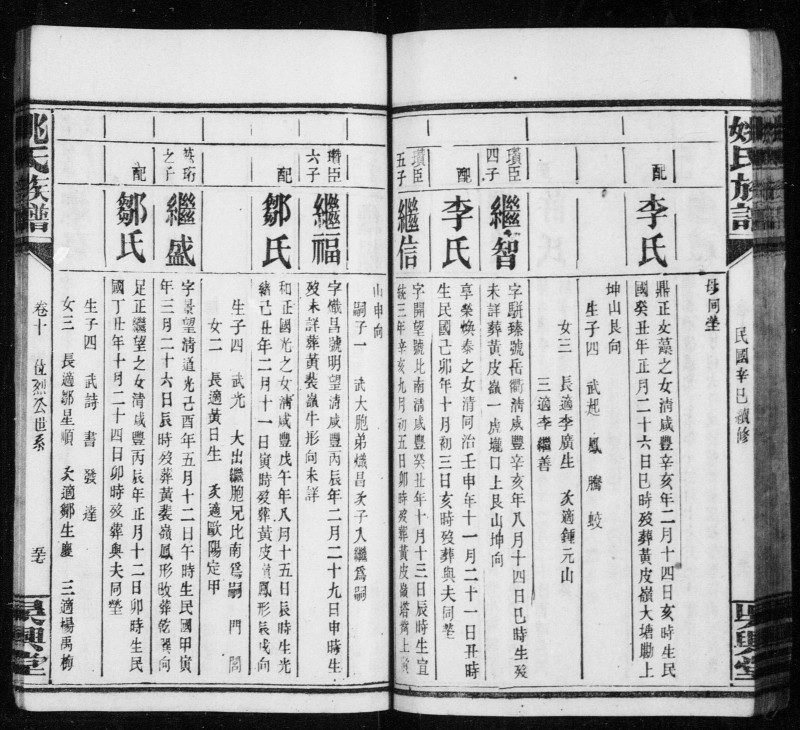 姚氏族譜
民國辛巳續修
吳興堂
母同塋
配
李氏
鼎正女蕙之女淸咸豐辛亥年二月十四日亥時生民
國癸丑年正月二十六日巳時歿葬黃皮嶺大塘勘上
坤山艮向
生子四 武起 鳳 騰 蛟
女三 長適李廣生 次適鍾元山
三適李繼善
瓚臣
四子
繼智
字駢臻號岳衢淸咸豐辛亥年八月十四日巳時生歿
未詳葬黃皮嶺一虎壠口上艮山坤向
配
李氏
享榮煥泰之女淸同治壬申年十一月二十一日丑時
生民國己卯年十月初三日亥時歿葬與夫同塋
瓚臣
五子
繼信
字開望號比南淸咸豐癸丑年十月十三日辰時生宣
統三年辛亥九月初五日卯時歿葬黃皮嶺塔
山申向
嗣子一 武大胞弟熾昌次子入繼爲嗣
瓚臣
六子
繼福
字熾昌號明望淸咸豐丙辰年二月二十九日申時生
歿未詳葬黃裝嶺牛形向未詳
配
鄒氏
和正國光之女淸咸豐戊午年八月十五日辰時生光
緒己丑年二月十一日寅時歿葬黃皮嶺鳳形辰戌向
生子四 武光 大出繼胞兄比南爲嗣 門 閣
女二 長適黃日生 次適歐陽定甲
之子
繼盛
字景望淸道光己酉年五月十二日午時生民國甲寅
年三月二十六日辰時歿葬黃裝嶺鳳形改葬乾巽向
配
鄒氏
足正繼望之女淸咸豐丙辰年正月十二日卯時生民
國丁丑年十月二十四日卯時歿葬與夫同塋
生子四 武詩 書 發 達
女三 長適鄒星順 次適鄒生慶 三適楊禹梅
姚氏族譜
卷十 位烈公世系
吳興堂